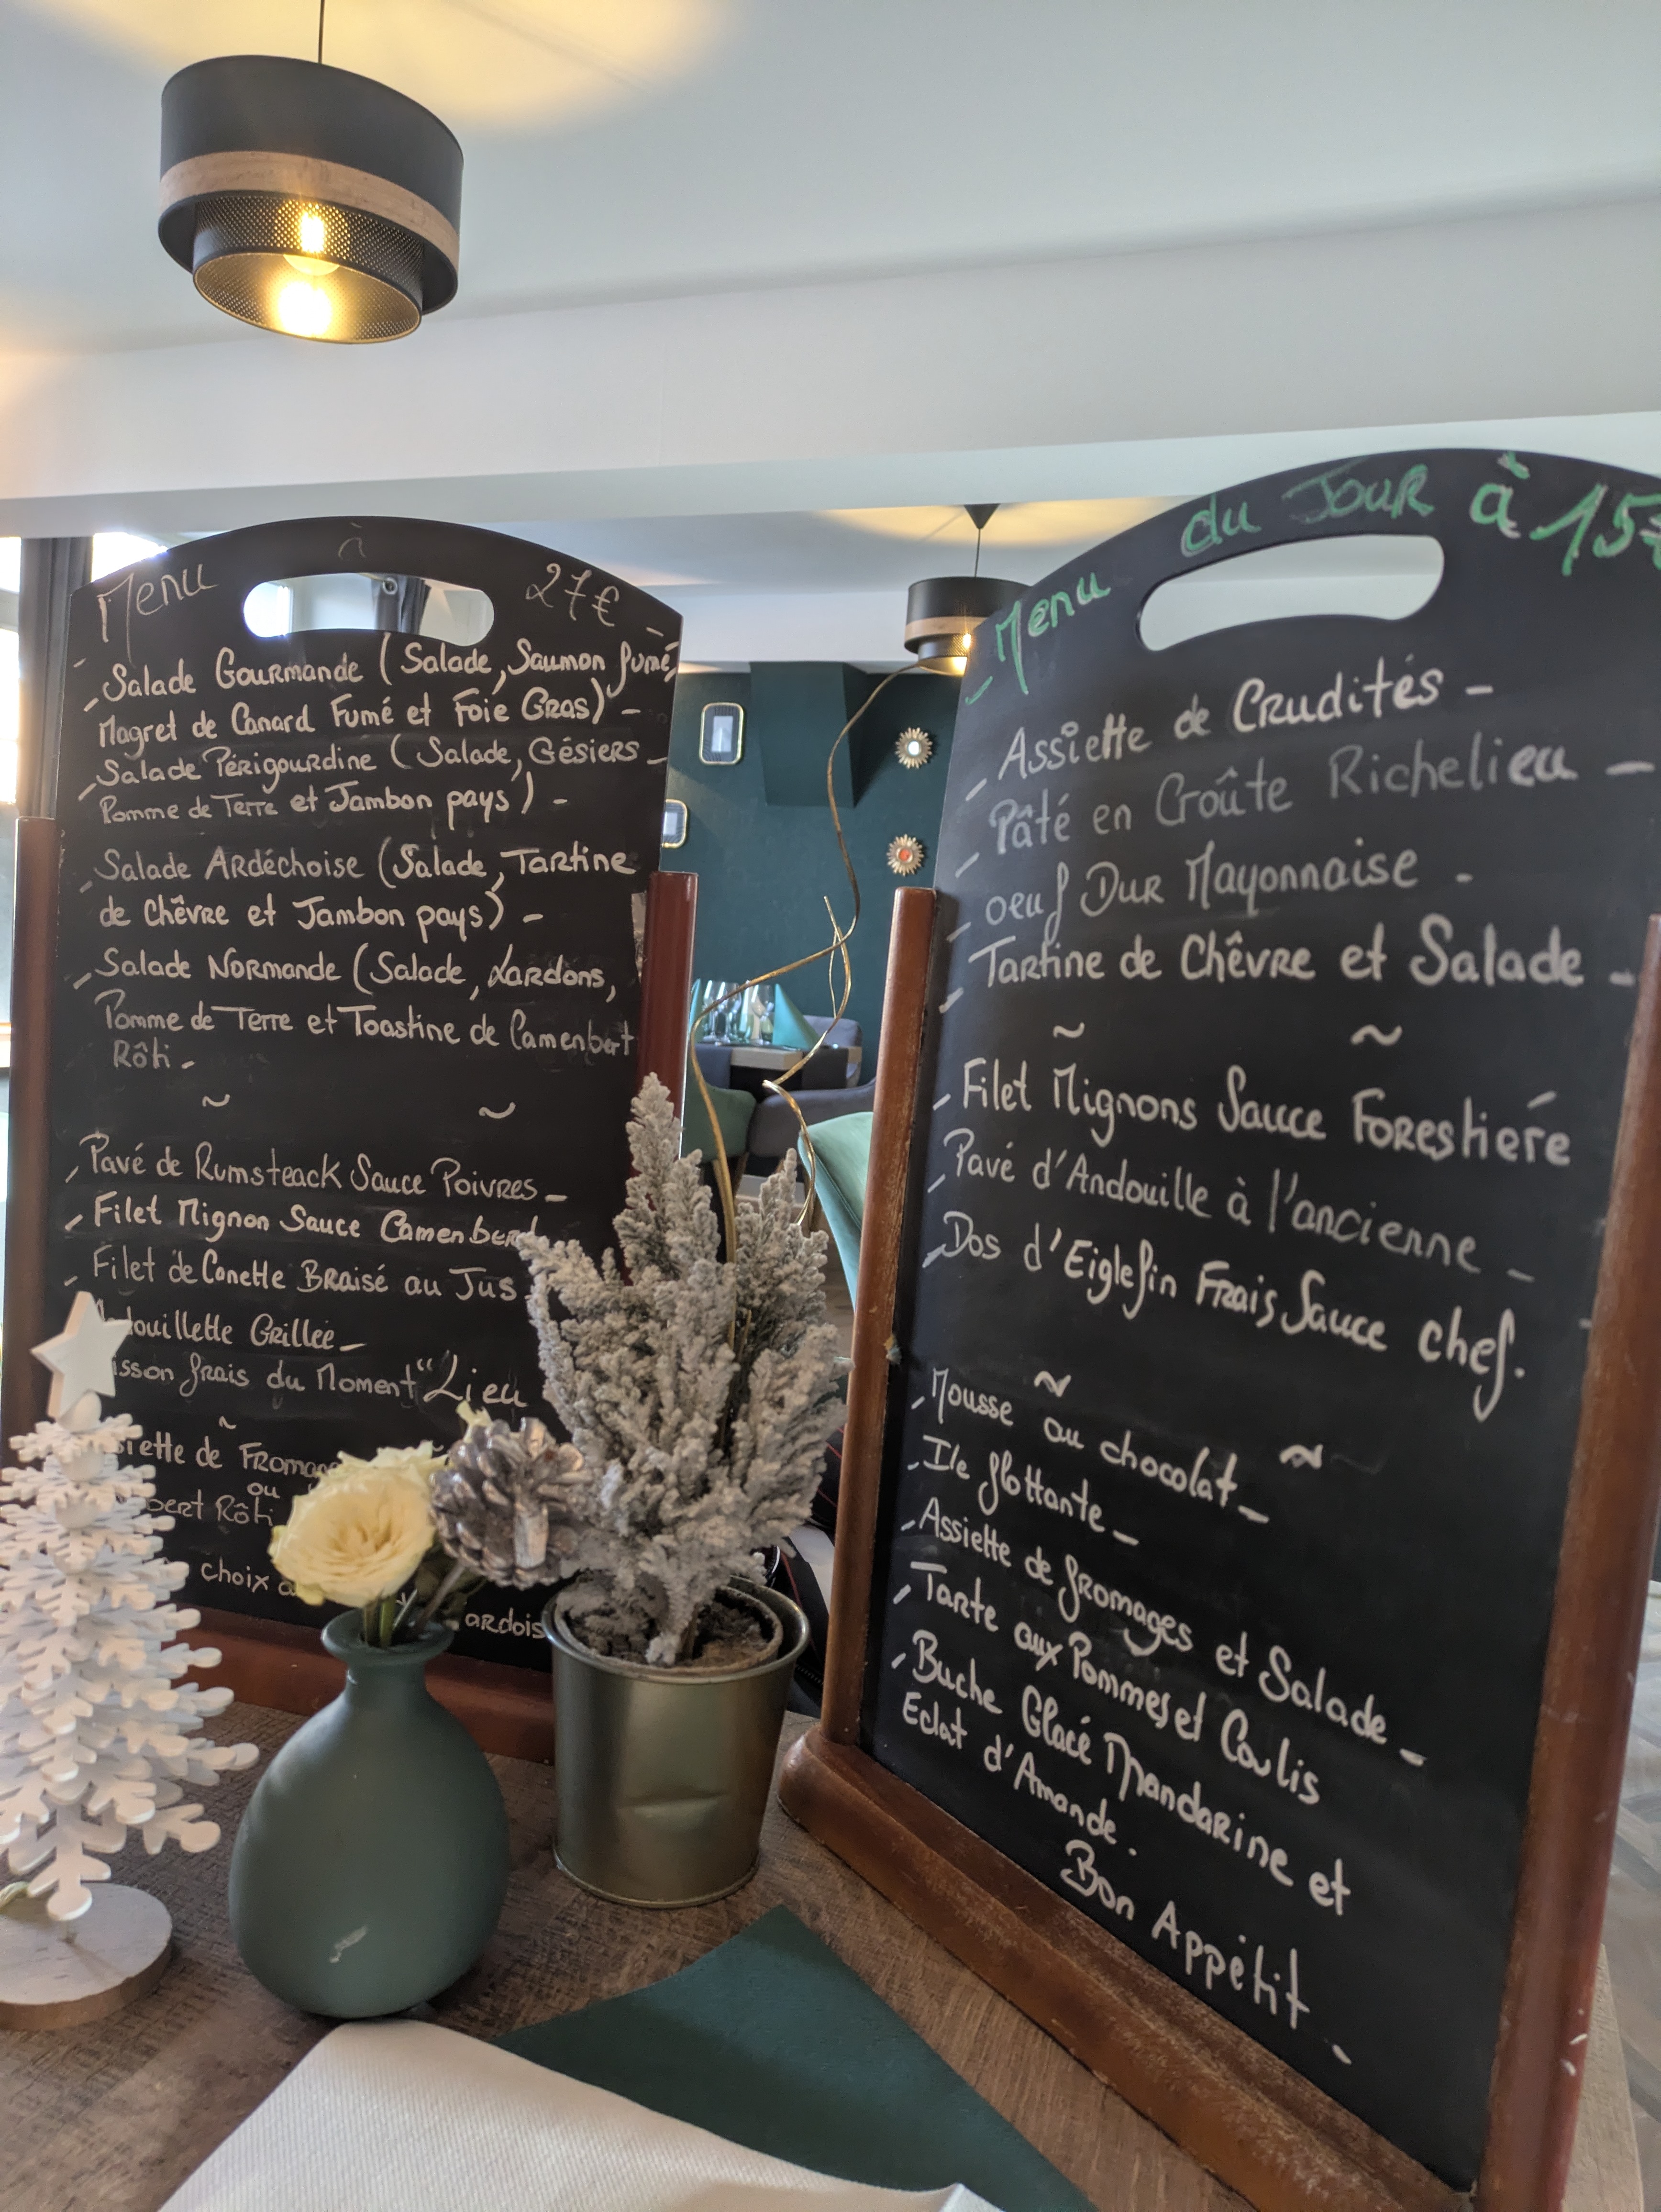 Menu à 27€
- Salade Gourmande (Salade, Saumon fumé,
Magret de Canard Fumé et Foie Gras) -
- Salade Périgourdine (Salade, Gésiers
Pomme de Terre et Jambon pays) -
- Salade Ardéchoise (Salade, Tartine
de Chêvre et Jambon pays) -
- Salade Normande (Salade, Lardons,
Pomme de Terre et Toastine de Camenbert
Rôti -
~ ~
- Pavé de Rumsteack Sauce Poivres -
- Filet Mignon Sauce Camenbert
- Filet de Canette Braisé au Jus
Grillée -
frais du Moment "Lieu
~
de
ou
Rôti
choix
Menu du Jour à 15€
- Assiette de Crudités -
- Pâté en Croûte Richelieu -
- oeuf Dur Mayonnaise -
- Tartine de Chêvre et Salade -
~ ~
- Filet Mignons Sauce Forestière
- Pavé d'Andouille à l'ancienne -
- Dos d'Eiglefin Frais Sauce chef.
~ ~
- Mousse au chocolat -
- Ile flottante -
- Assiette de fromages et Salade -
- Tarte aux Pommes et Coulis
- Buche Glacé Mandarine et
Eclat d'Amande.
Bon Appétit -